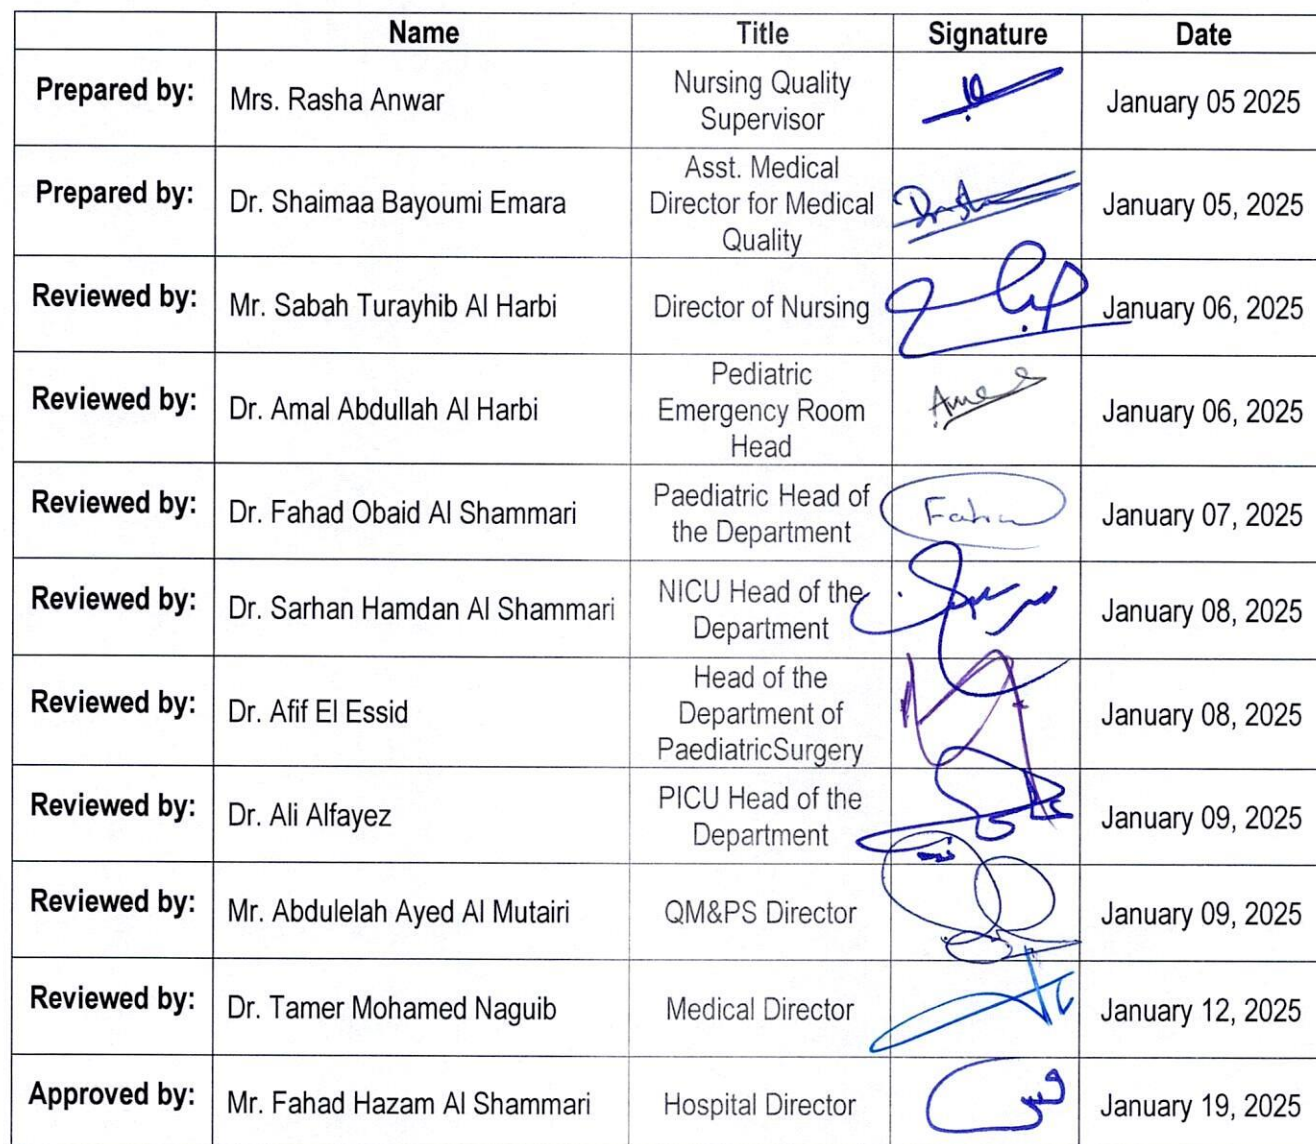 Name Title Signature Date
Prepared by: Mrs. Rasha Anwar Nursing Quality Supervisor January 05 2025
Prepared by: Dr. Shaimaa Bayoumi Emara Asst. Medical Director for Medical Quality January 05, 2025
Reviewed by: Mr. Sabah Turayhib Al Harbi Director of Nursing January 06, 2025
Reviewed by: Dr. Amal Abdullah Al Harbi Pediatric Emergency Room Head January 06, 2025
Reviewed by: Dr. Fahad Obaid Al Shammari Paediatric Head of the Department January 07, 2025
Reviewed by: Dr. Sarhan Hamdan Al Shammari NICU Head of the Department January 08, 2025
Reviewed by: Dr. Afif El Essid Head of the Department of PaediatricSurgery January 08, 2025
Reviewed by: Dr. Ali Alfayez PICU Head of the Department January 09, 2025
Reviewed by: Mr. Abdulelah Ayed Al Mutairi QM&PS Director January 09, 2025
Reviewed by: Dr. Tamer Mohamed Naguib Medical Director January 12, 2025
Approved by: Mr. Fahad Hazam Al Shammari Hospital Director January 19, 2025